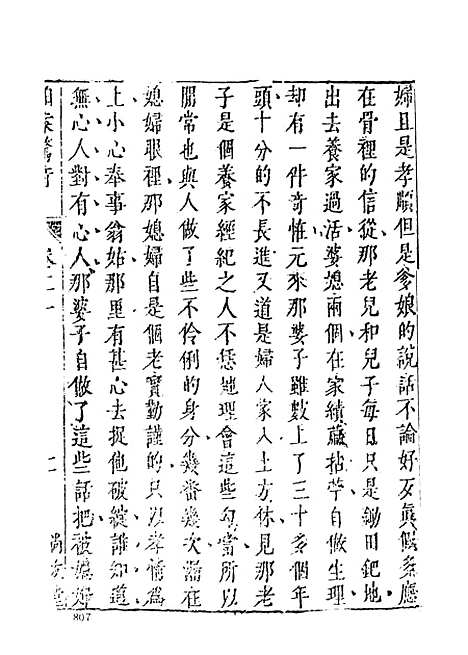 婦且是孝順但是爹娘的說話不論好歹真假多應
在骨裡的信從那老兒和兒子每日只是鋤田鈀地
出去養家過活婆媳兩個在家績蔴拈苧自做生理
却有一件奇怪元來那婆子雖數上了三十多個年
頭十分的不長進又道是婦人家入土方休見那老
子是個養家經紀之人不恁地理會這些勾當所以
閒常也與人做了些不伶俐的身分幾番幾次漏在
媳婦眼裡那媳婦自是個老實勤謹的只以孝情爲
上小心奉事翁姑那里有甚心去捉他破綻誰知道
無心人對有心人那婆子自做了這些話把被媳婦
拍案驚奇
卷二十
尚友堂
807